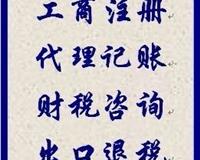 工商注册
代理记账
财税咨询
出口退税